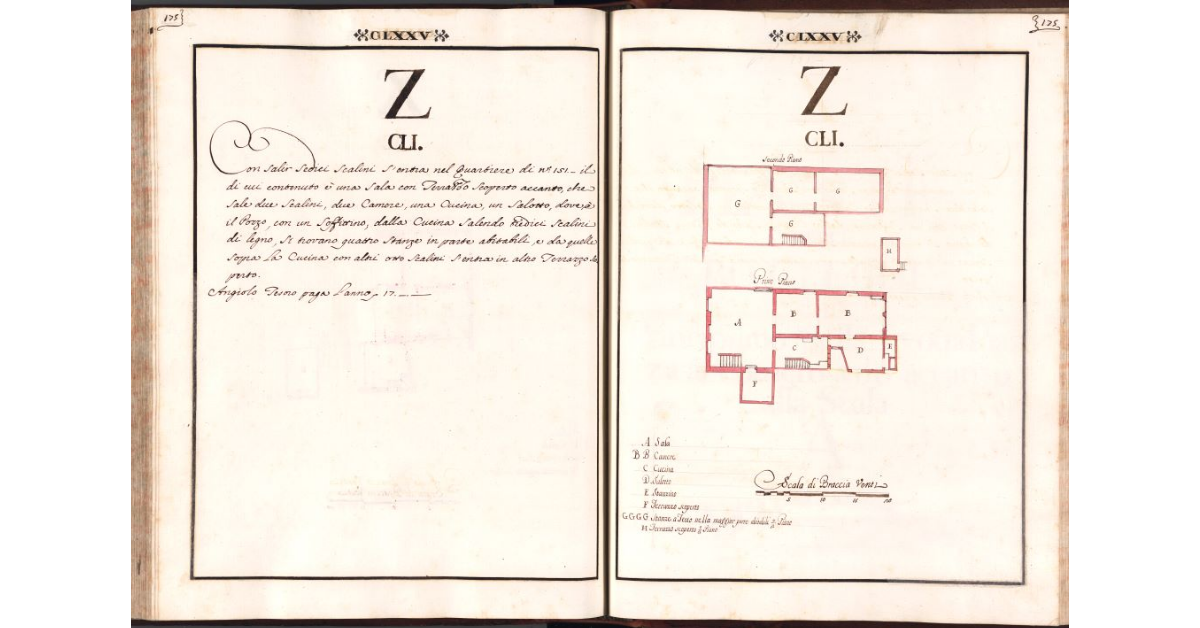 175
CLXXV
Z
CLI.
Con salir Sedici Scalini s'entra nel Quartiere di nº 151 – il
di cui contenuto è una Sala con Terrazzo Scoperto accanto, che
Sale due Scalini, due Camere, una Cucina, un Salotto, dove è
il Pozzo, con un Soffittino, dalla Cucina Salendo tredici Scalini
di legno, Si trovano quattro Stanze in parte abitabili, e da quelle
Sopra La Cucina con altri otto Scalini s'entra in altro Terrazzo Sco
perto.
Angiolo Tesoro paga l'anno 17.
175
CLXXV
Z
CLI.
Secondo Piano
G
G
G
G
H
Primo Piano
A
B
B
C
D
E
F
A Sala
B B Camere
C Cucina
D Salotto
E
F Terrazzo scoperto
G G G G Stanze a Tetto nella maggior parte Piano
H Terrazzo scoperto Piano
Scala di Braccia Venti
5 10 15 20